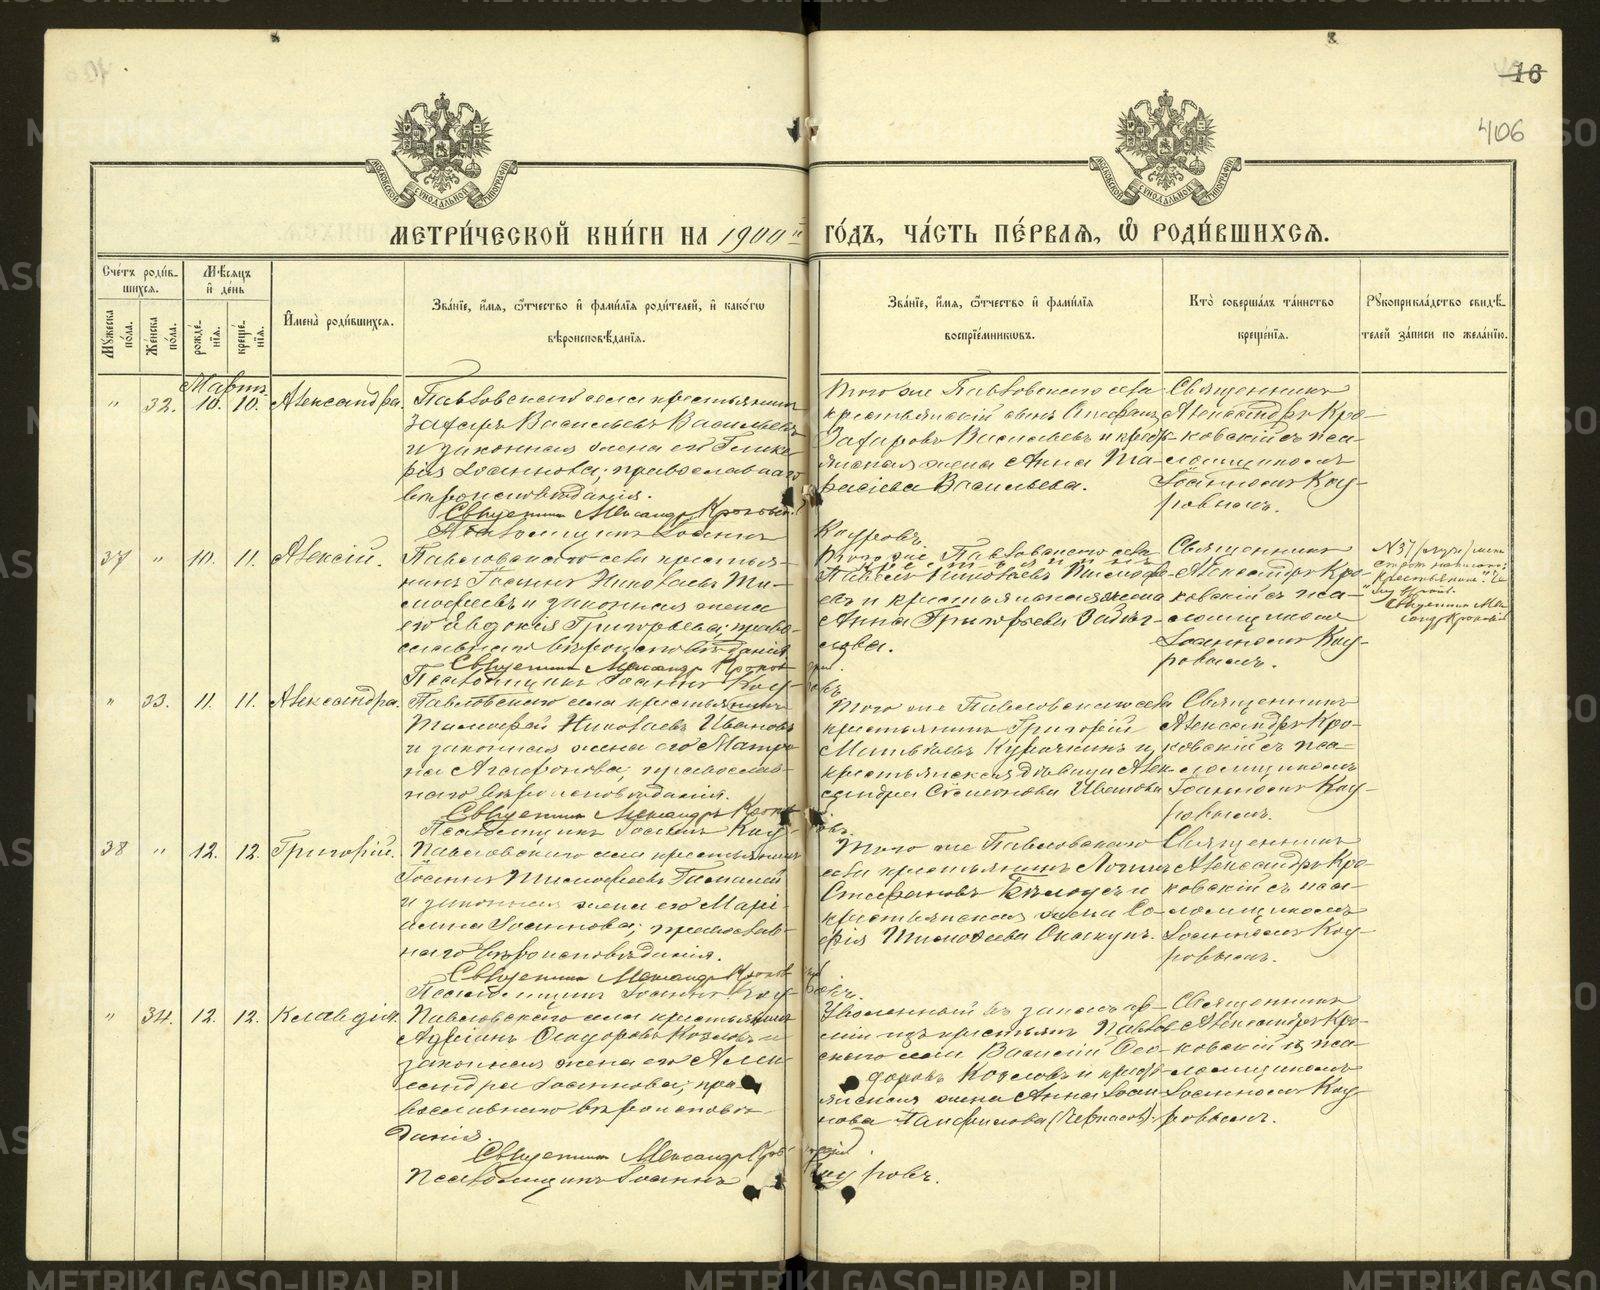 16
406
МЕТРИ́ЧЕСКОЙ КНИ́ГИ НА 1900й ГО́ДЪ, ЧА́СТЬ ПЕ́РВАЯ, Ѡ РОДИ́ВШИХСЯ.
Сче́тъ роди́в-
шихся.
Мꙋ́жеска по́ла.
Же́нска по́ла.
Мѣ́сяцъ
и҆ де́нь
рожде́-
нїя.
креще́-
нїя.
И҆мена̀ роди́вшихся.
Зва́нїе, и҆́мя, ѻ҆́тчество и҆ фамі́лїя роди́телей, и҆ како́гѡ
вѣроисповѣ́данїя.
Зва́нїе, и҆́мя, ѻ҆́тчество и҆ фамі́лїя
воспрїе́мникѡвъ.
Кто̀ соверша́лъ та́инство
креще́нїя.
Рꙋкоприкла́дство свидѣ́-
телей за́писи по жела́нїю.
Мартъ.
" 32. 10. 10. Александра.
Павловскаго села крестьянинъ
Захаръ Васильевъ Васильевъ
и законная жена его Глике-
рия Іоаннова; православнаго
вѣроисповѣданія.
Священникъ Александръ Кроковскій
Псаломщикъ Іоаннъ Кауровъ.
Того же Павловскаго села
крестьянскій сынъ Стефанъ
Захаровъ Васильевъ и кресть-
янская жена Анна Та-
расіева Васильева.
Священникъ
Александръ Кро-
ковскій съ пса-
ломщикомъ
Іоанномъ Кау-
ровымъ.
37 " 10. 11. Алексій.
Павловскаго села крестья-
нинъ Іоаннъ Николаевъ Ти-
мофеевъ и законная жена
его Авдокія Григорьева; право-
славнаго вѣроисповѣданія
Священникъ Александръ Кроковскій.
Псаломщикъ Іоаннъ Кауровъ
Того же Павловскаго села
крестьянинъ
Павелъ Николаевъ Тимофе-
евъ и крестьянская жена
Анна Григорьева
Священникъ
Александръ Кро-
ковскій съ пса-
ломщикомъ
Іоанномъ Кау-
ровымъ.
N 37
строк написано:
"крестьянинъ."
Священникъ Алек-
сандръ Кроковскій
" 33. 11. 11. Александра.
Павловскаго села крестьянинъ
Тимофей Николаевъ Ивановъ
и законная жена его Матро-
на Агафонова; православ-
наго вѣроисповѣданія.
Священникъ Александръ Кроковскій
Псаломщикъ Іоаннъ Кауровъ.
Того же Павловскаго села
крестьянинъ Григорій
Матвѣевъ Курочкинъ и
крестьянская дѣвица Алек-
сандра Сѵмеонова Иванова
Священникъ
Александръ Кро-
ковскій съ пса-
ломщикомъ
Іоанномъ Кау-
ровымъ.
38 " 12. 12. Григорій.
Павловскаго села крестьянинъ
Іоаннъ Тимофеевъ
и законная жена его Марі-
амна Іоаннова; православ-
наго вѣроисповѣданія.
Священникъ Александръ Кроковскій
Псаломщикъ Іоаннъ Кауровъ.
Того же Павловскаго
села крестьянинъ Логинъ
Стефановъ Бѣлоусъ и
крестьянская жена Со-
фія Тимофеева
Священникъ
Александръ Кро-
ковскій съ пса-
ломщикомъ
Іоанномъ Кау-
ровымъ.
" 34. 12. 12. Клавдія.
Павловскаго села крестьянинъ
Адріанъ Ѳеодоровъ Козловъ и
законная жена его Алек-
сандра Іоаннова; пра-
вославнаго вѣроисповѣ-
данія.
Священникъ Александръ Кроковскій
Псаломщикъ Іоаннъ Кауровъ.
Уволенный въ запасъ ар-
міи изъ крестьянъ Павлов-
скаго села Василій Ѳео-
доровъ Козловъ и кресть-
янская жена Анна Іоан-
нова Панфилова
Священникъ
Александръ Кро-
ковскій съ пса-
ломщикомъ
Іоанномъ Кау-
ровымъ.
METRIKI.GASO-URAL.RU